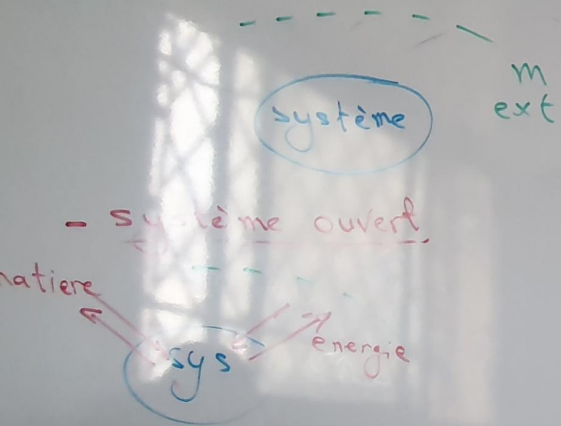 m
ext
système
- système ouvert
matiere
energie
sys